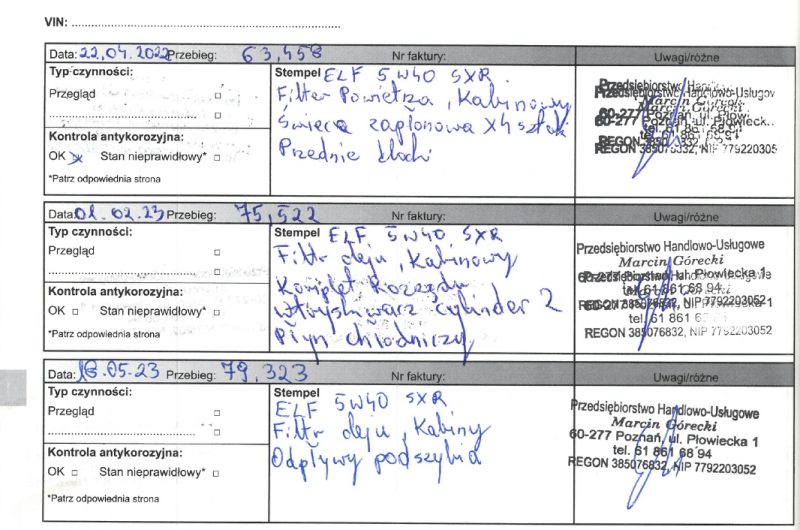 VIN:
Data: 22,04.2022 Przebieg: 63,458 Nr faktury: Uwagi/różne
Typ czynności:
Przegląd
Kontrola antykorozyjna:
OK Stan nieprawidłowy*
*Patrz odpowiednia strona
Stempel ELF 5W40 SXR
Filter Powietrza, Kabinowy
Świeca zapłonowa x4 sztuki
Przednie klocki
Przedsiębiorstwo Handlowo-Usługow
Marcin Górecki
60-277 Poznań, ul. Płowieck
tel. 61 861 68 94
REGON 385076832, NIP 779220305
Data: 01.02.23 Przebieg: 75,522 Nr faktury: Uwagi/różne
Typ czynności:
Przegląd
Kontrola antykorozyjna:
OK Stan nieprawidłowy*
*Patrz odpowiednia strona
Stempel ELF 5W40 SXR
Filtr oleju, Kabinowy
Komplet Rozrządu
Wtryskiwacz cylinder 2
Płyn chłodniczy
Przedsiębiorstwo Handlowo-Usługowe
Marcin Górecki
60-277 Poznań, ul. Płowiecka 1
tel. 61 861 68 94
REGON 385076832, NIP 7792203052
Data: 18.05.23 Przebieg: 79,323 Nr faktury: Uwagi/różne
Typ czynności:
Przegląd
Kontrola antykorozyjna:
OK Stan nieprawidłowy*
*Patrz odpowiednia strona
Stempel
ELF 5W40 SXR
Filtr oleju, Kabiny
Odpływy podszybia
Przedsiębiorstwo Handlowo-Usługowe
Marcin Górecki
60-277 Poznań, ul. Płowiecka 1
tel. 61 861 68 94
REGON 385076832, NIP 7792203052